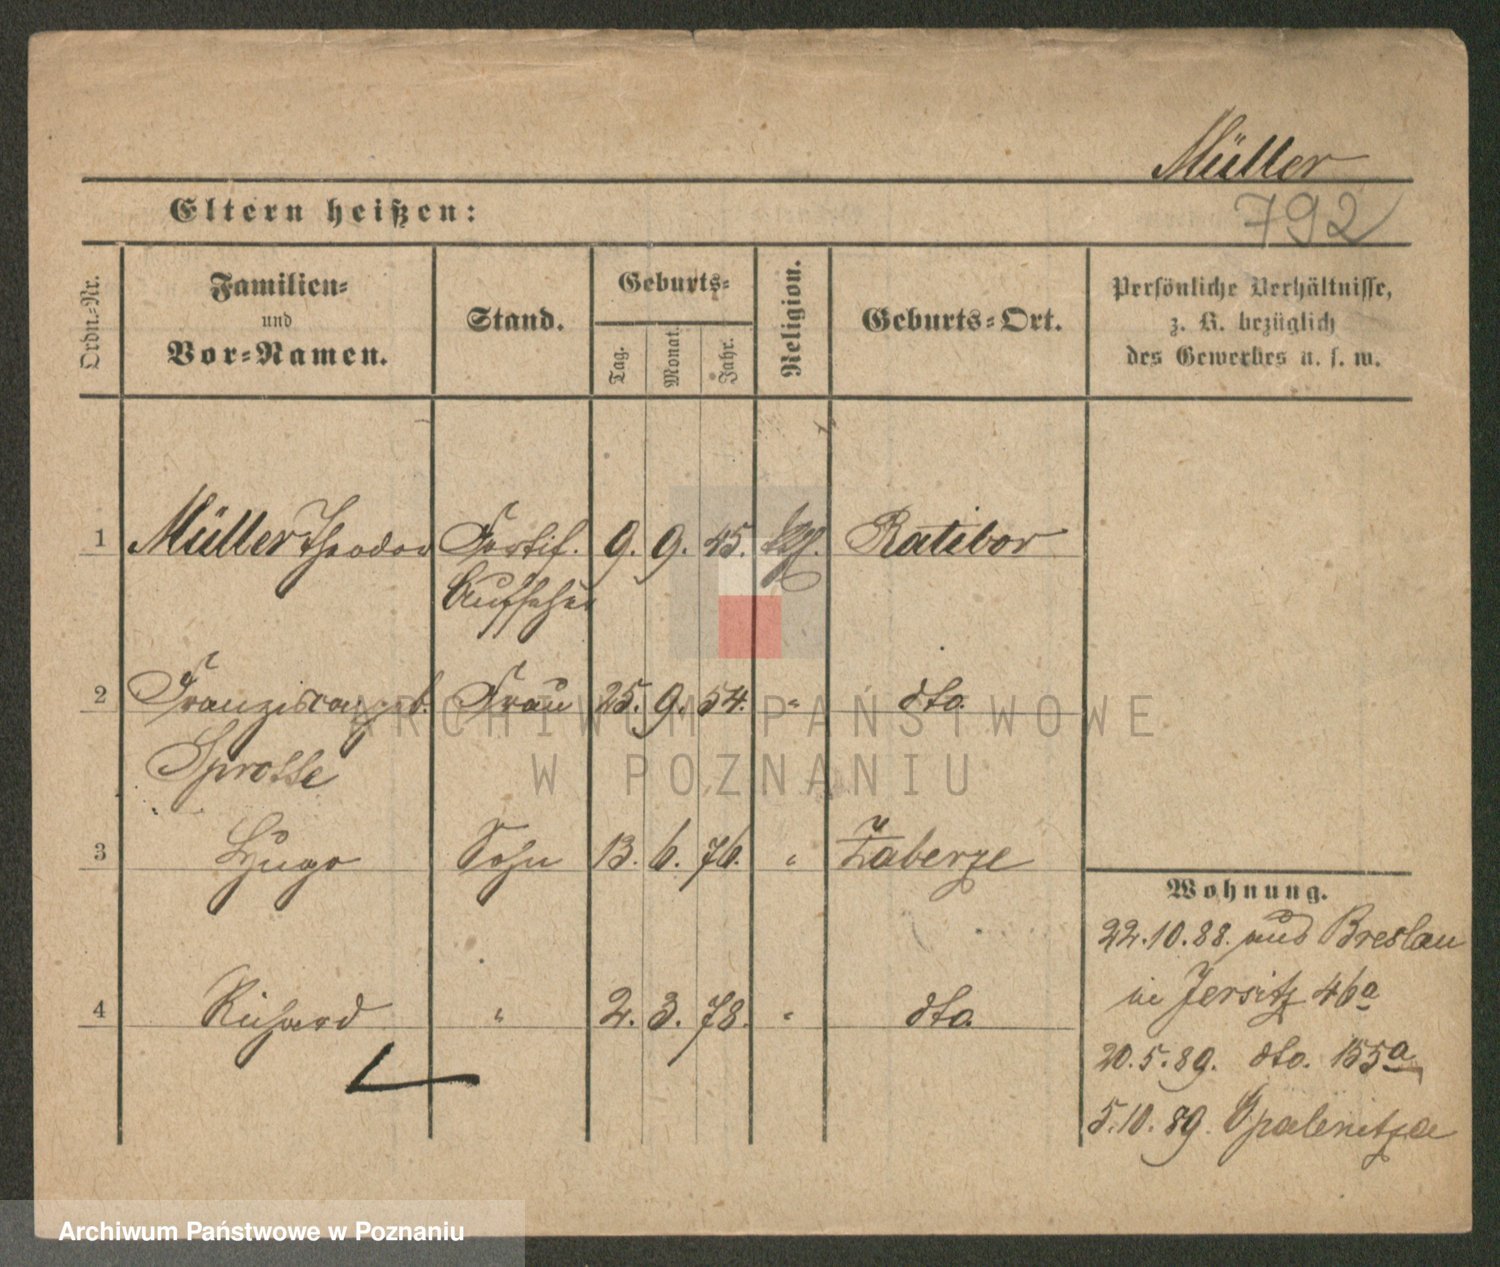 Müller
Eltern heißen:
792
Ordn.-Nr.
Familien-
und
Vor-Namen.
Stand.
Geburts-
Tag.
Monat.
Jahr.
Religion.
Geburts-Ort.
Persönliche Verhältnisse,
z. B. bezüglich
des Gewerbes u. s. w.
1 Müller Theodor Fortif. 9. 9. 45. Ratibor
Aufseher
2 Franziska geb. Frau 25. 9. 54. " dto.
Sprotte
3 Hugo Sohn 13. 6. 76. " Zaberze
4 Richard " 2. 3. 78. " dto.
Wohnung.
22.10.88. aus Breslau
in Jersitz 46a
20.5.89. dto. 155a
5.10.89. Opalenitza
ARCHIWUM PAŃSTWOWE
W POZNANIU
Archiwum Państwowe w Poznaniu